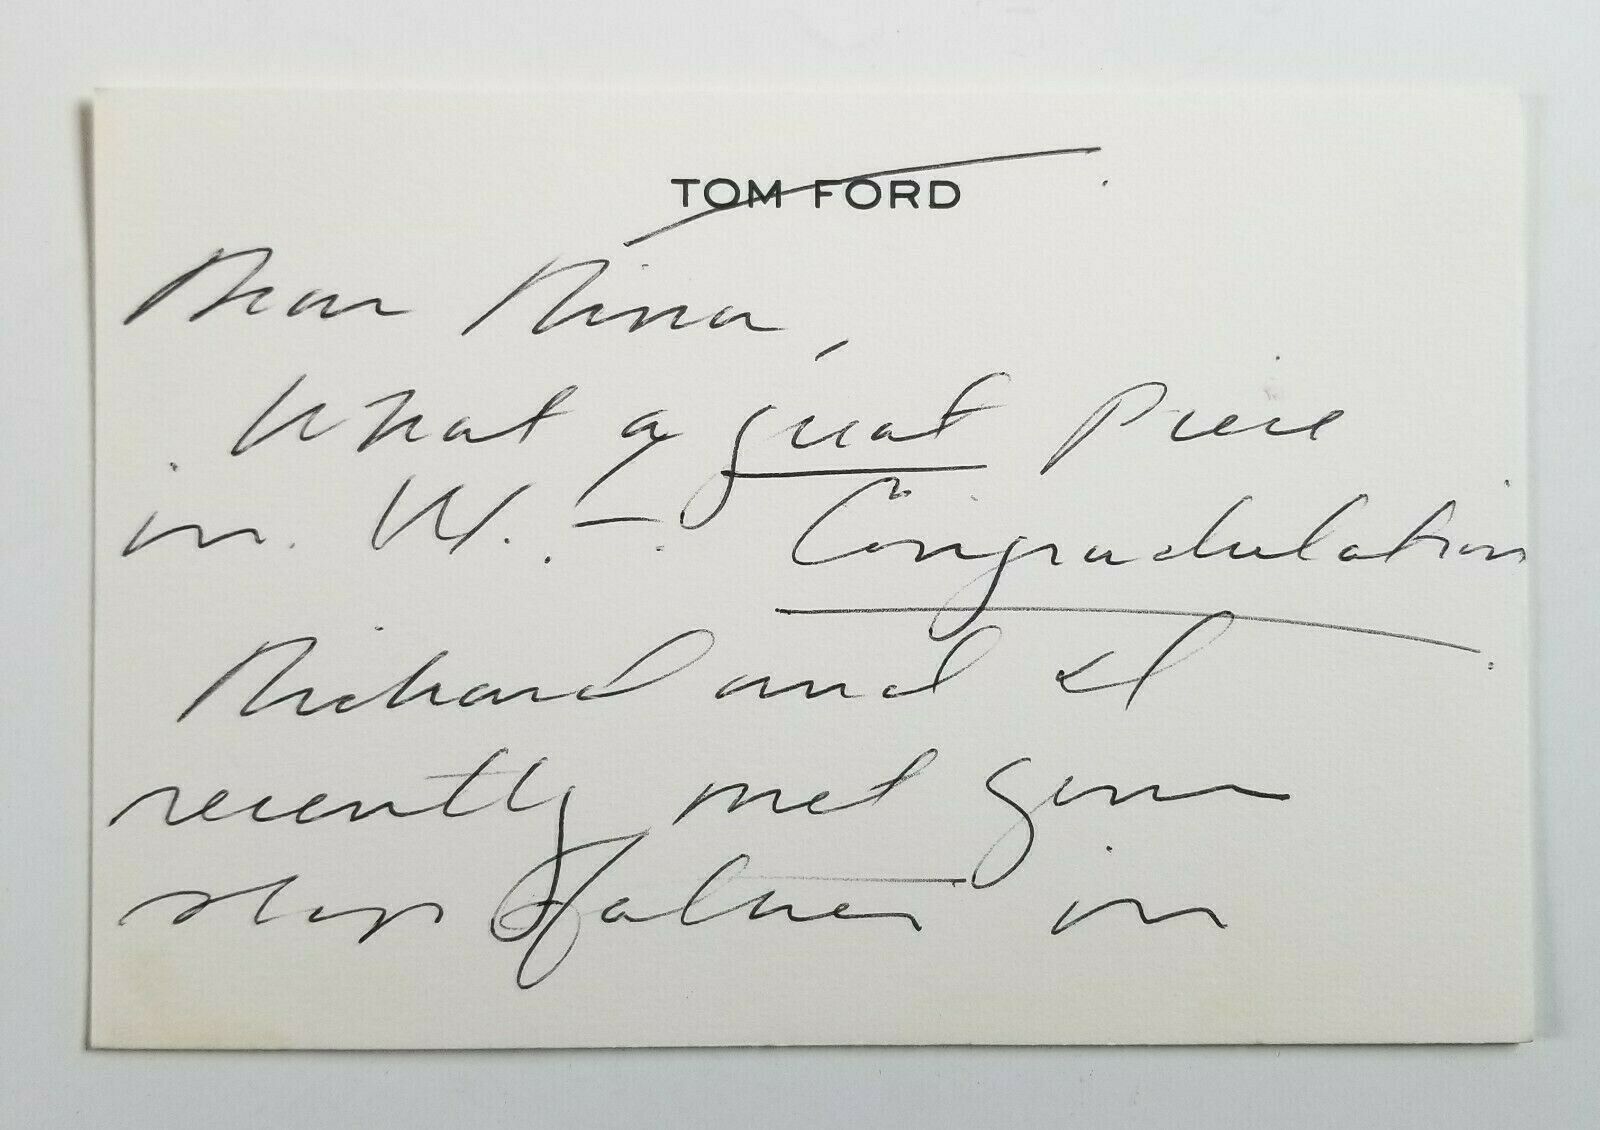 TOM FORD
Dear Nina,
What a great piece
in W. - Congradulations
Richard and I
recently met your
step father in